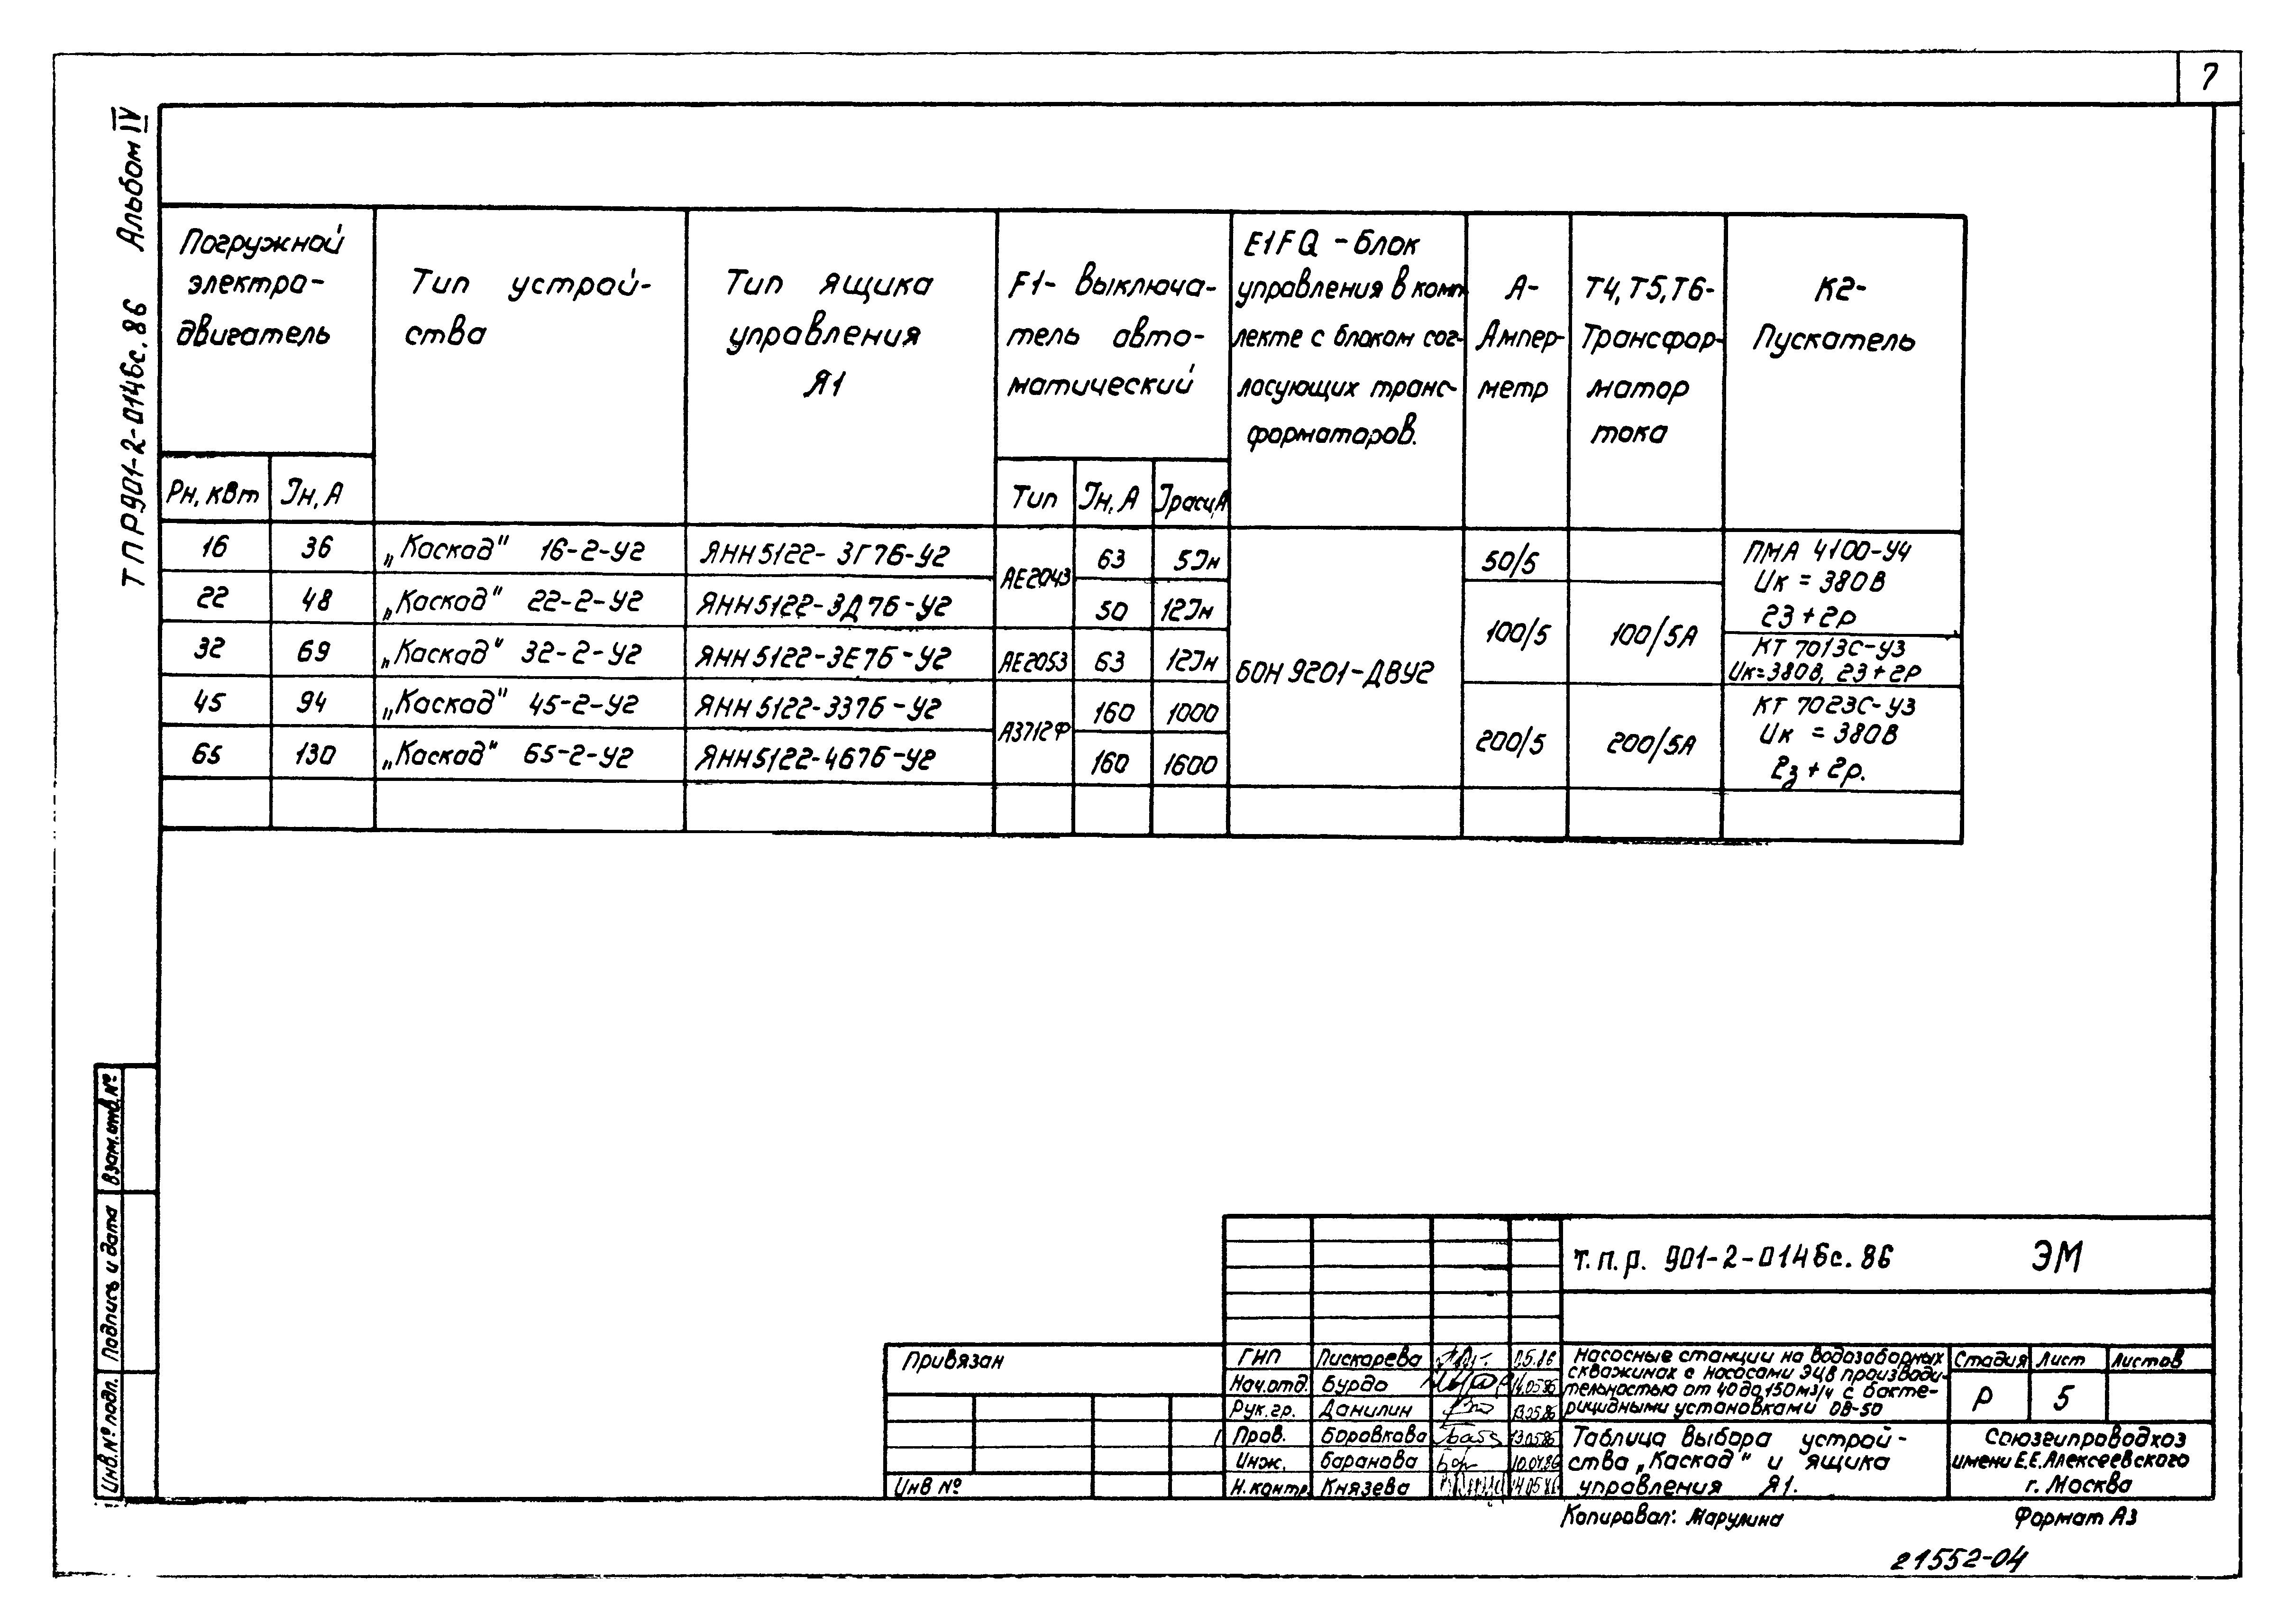 7
ТПР901-2-0146с.86 Альбом IV
Погружной
электро-
двигатель
Тип устрой-
ства
Тип ящика
управления
Я1
F1- Выключа-
тель авто-
матический
E1FQ - блок
управления в комп
лекте с блоком сог-
ласующих транс-
форматоров.
А-
Ампер-
метр
Т4, Т5, Т6-
Трансфор-
матор
тока
К2-
Пускатель
Рн, кВт Iн, А
Тип Iн, А Iрасц.А
16 36 „Каскад" 16-2-У2 ЯНН5122-3Г7Б-У2 АЕ2043 63 5Iн 50/5
22 48 „Каскад" 22-2-У2 ЯНН5122-3Д7Б-У2 50 12Iн
32 69 „Каскад" 32-2-У2 ЯНН5122-3Е7Б-У2 АЕ2053 63 12Iн
45 94 „Каскад" 45-2-У2 ЯНН5122-337Б-У2 А3712Ф 160 1000
65 130 „Каскад" 65-2-У2 ЯНН5122-467Б-У2 160 1600
БОН 9201-ДВУ2
100/5 100/5А
200/5 200/5А
ПМА 4100-У4
Uк = 380В
2З + 2Р
КТ 7013С-У3
Uк=380В, 2З + 2Р
КТ 7023С-У3
Uк = 380В
2з + 2р.
Взам.инв.№
Подпись и дата
Инв.№ подл.
т.п.р. 901-2-0146с.86 ЭМ
Привязан
Инв №
ГИП Пискарева 05.86
Нач.отд. Бурдо 14.05.86
Рук.гр. Данилин 13.05.86
Пров. Боровкова 13.05.86
Инж. Баранова 10.04.86
Н.контр. Князева 14.05.86
Насосные станции на водозаборных
скважинах с насосами ЭЦВ производи-
тельностью от 40 до 150 м3/ч с бакте-
рицидными установками ОВ-50
Стадия Лист Листов
Р 5
Таблица выбора устрой-
ства „Каскад" и ящика
управления Я1.
Союзгипроводхоз
имени Е.Е.Алексеевского
г. Москва
Копировал: Марулина
Формат А3
21552-04